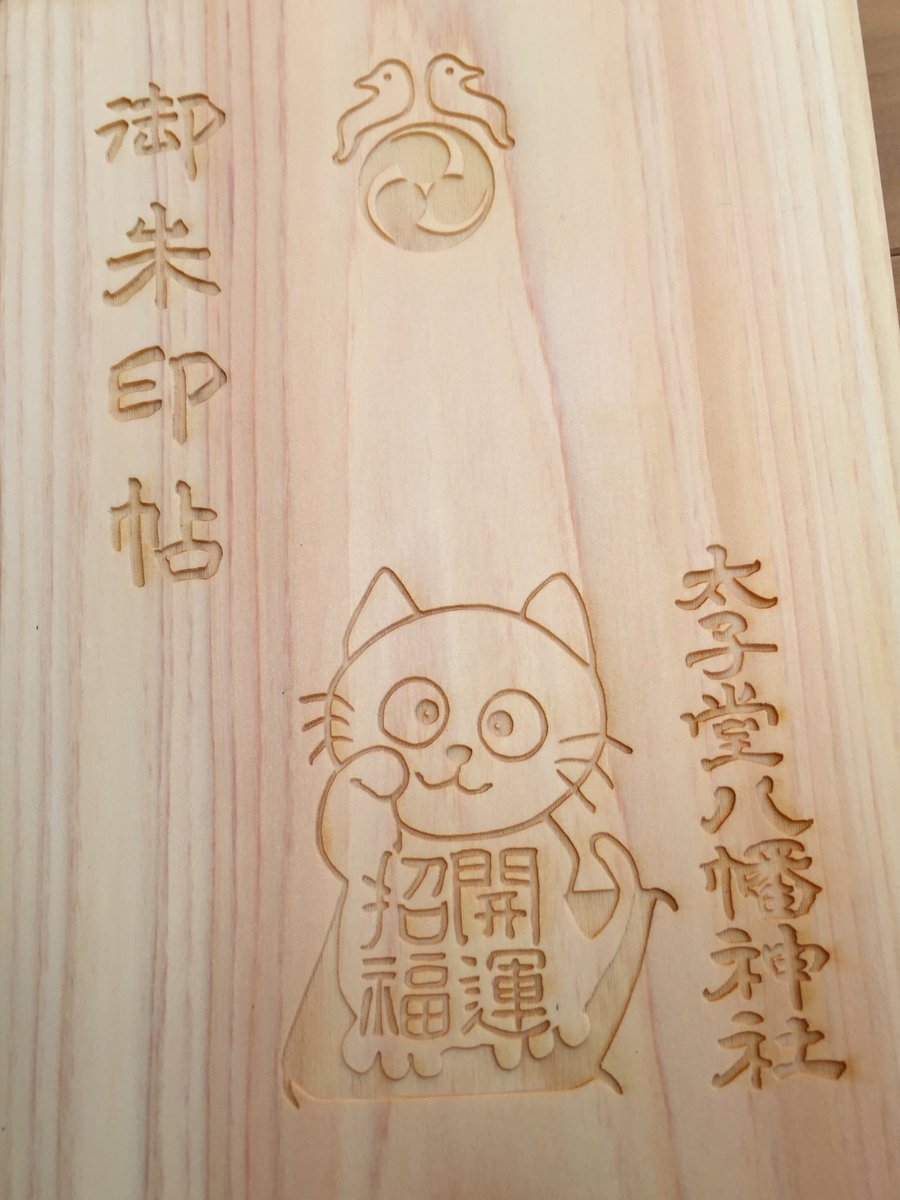 御朱印帖
開運
招福
太子堂八幡神社